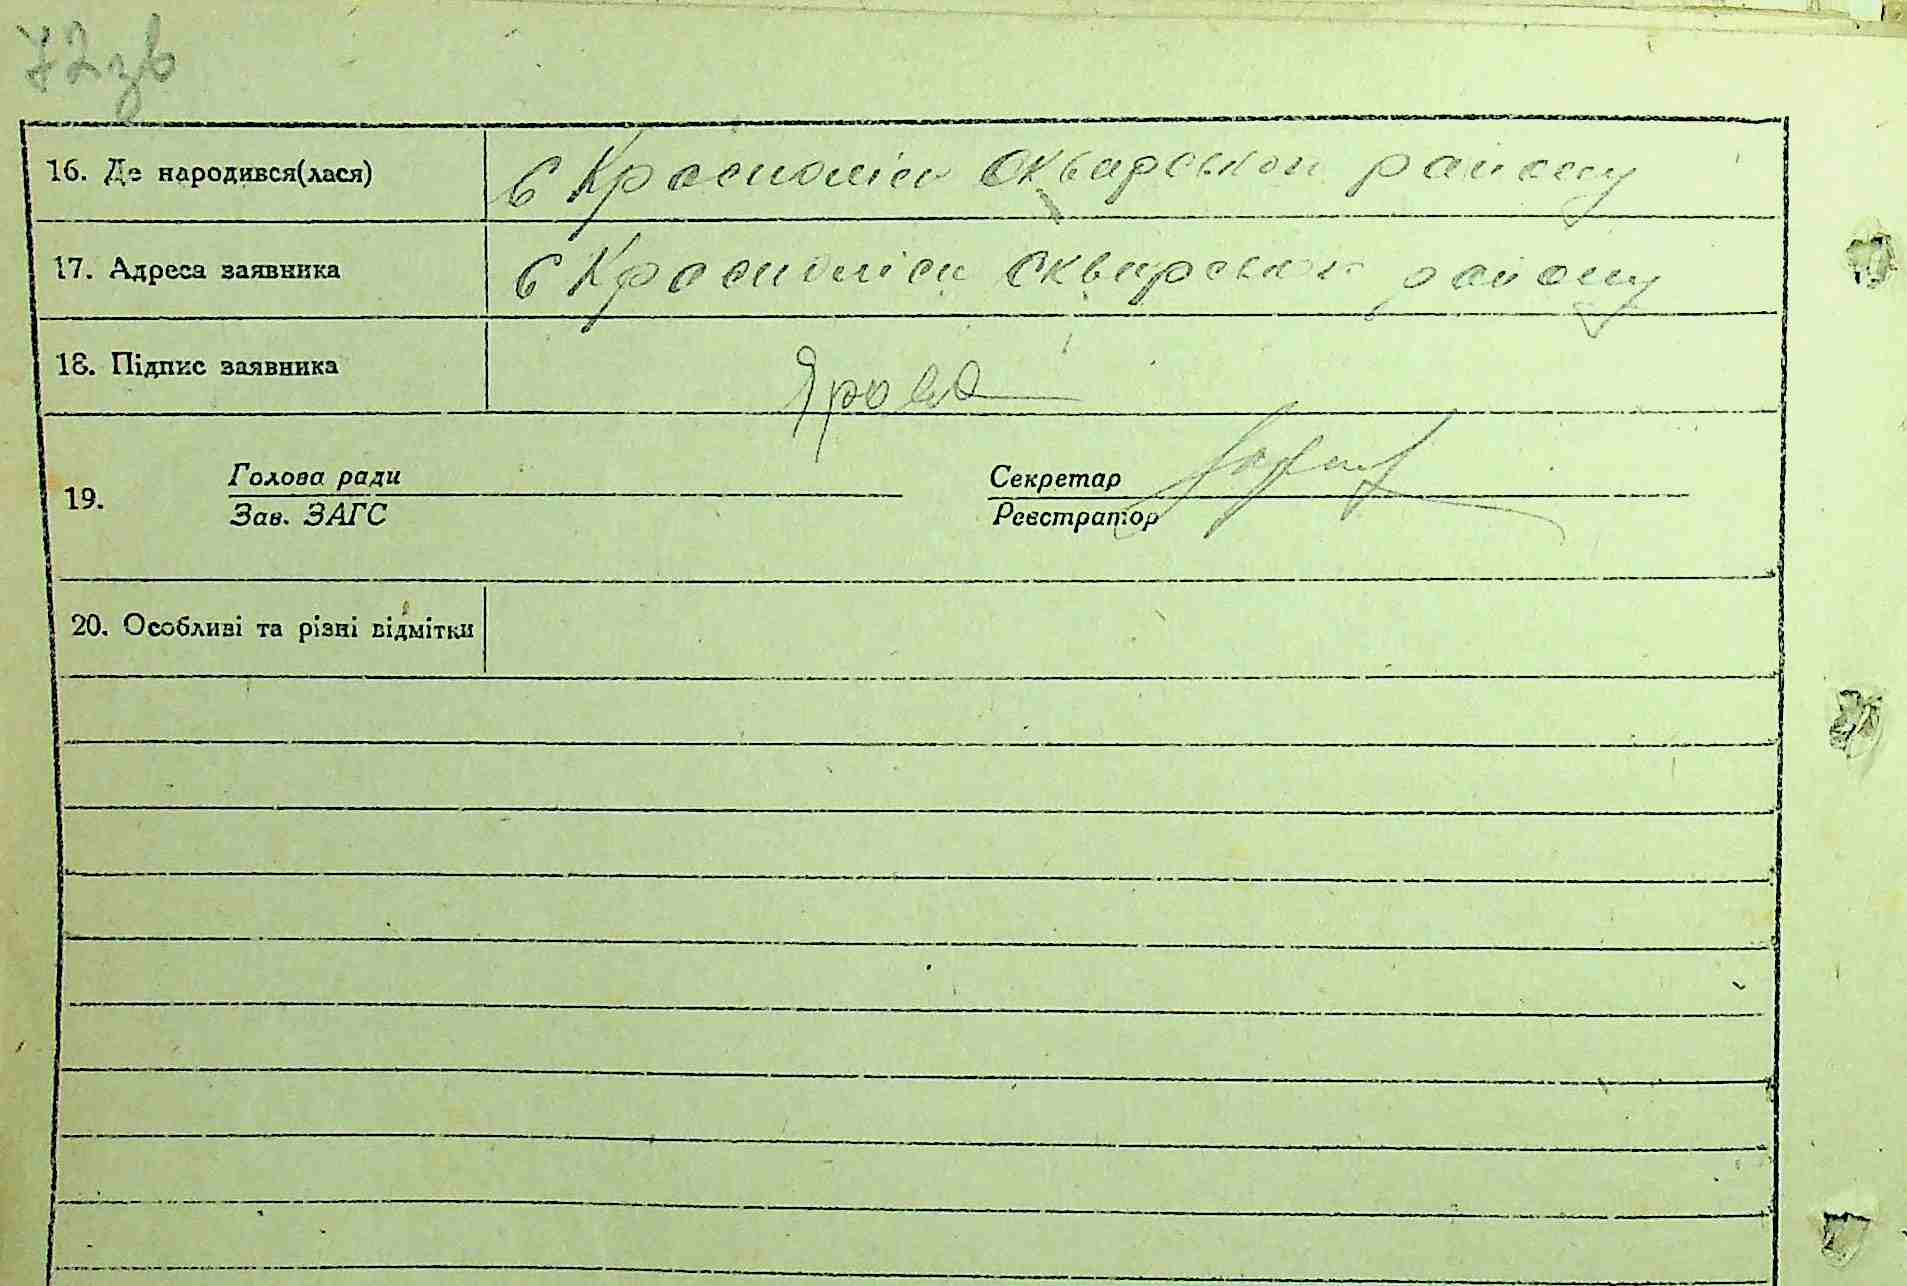 72зв
16. Де народився(лася) с Красноліси Сквирськои району
17. Адреса заявника с Красноліси Сквирськои району
18. Підпис заявника Ярова
Голова ради Секретар
19.
Зав. ЗАГС Реєстратор
20. Особливі та різні відмітки